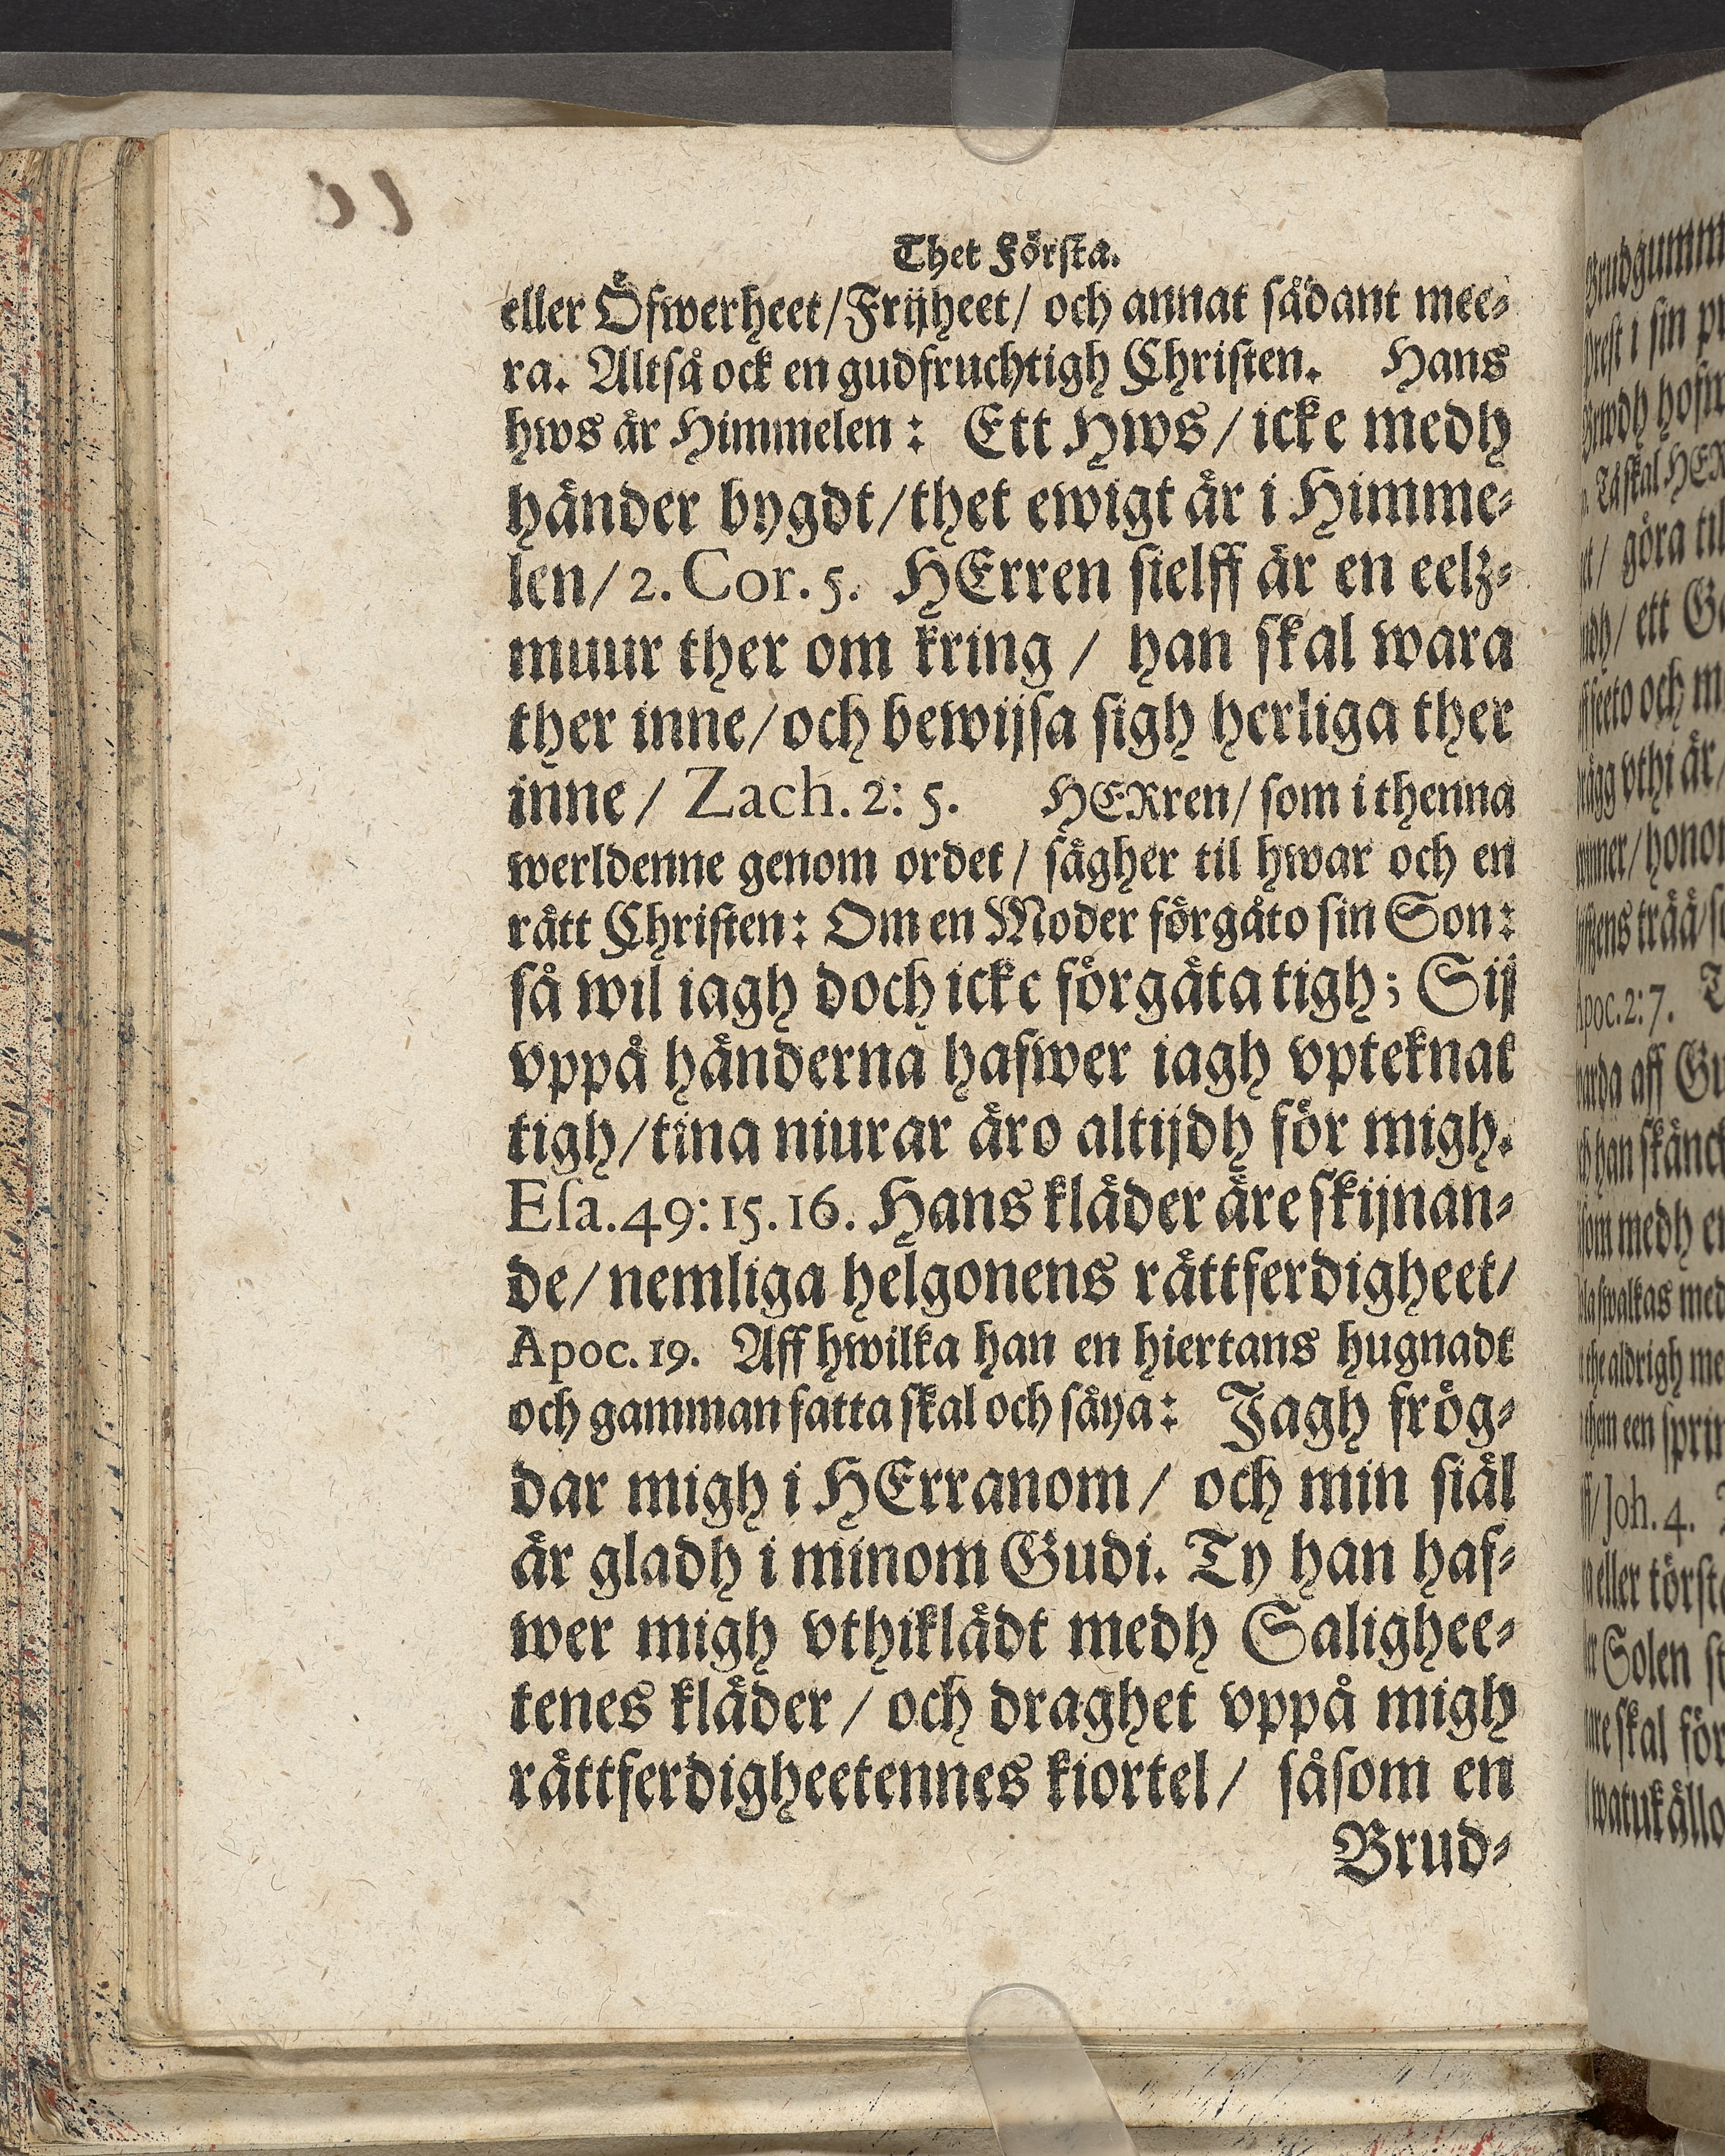 Thet Första.
eller Öfwerheet/Frijheet/ och annat sådant mee⸗
ra. Altså ock en gudfruchtigh Christen. Hans
hws är Himmelen: Ett Hws/icke medh
händer bygdt/thet ewigt är i Himme⸗
len/2. Cor. 5. HErren sielff är en eelz⸗
muur ther om kring / han skal wara
ther inne/och bewijsa sigh herliga ther
inne/ Zach. 2: 5. HERren/ som i thenna
werldenne genom ordet/ sägher til hwar och en
rätt Christen: Om en Moder förgäto sin Son:
så wil iagh doch icke förgäta tigh; Sij
vppå händerna hafwer iagh vpteknat
tigh/tina niurar äro altijdh för migh.
Esa. 49: 15. 16. Hans kläder äre skijnan⸗
de/ nemliga helgonens rättferdigheet/
Apoc. 19. Aff hwilka han en hiertans hugnadt
och gamman fatta skal och säya: Jagh frög⸗
dar migh i HErranom/ och min siäl
är gladh i minom Gudi. Ty han haf⸗
wer migh vthiklädt medh Salighee⸗
tenes kläder/ och draghet vppå migh
rättferdigheetennes kiortel/ såsom en
Brud⸗
Brudgumm
prest i sin
hofw
Tå skal HER
göra til
ett
och
vthi är/
honom
trää/
Apoc. 2: 7.
aff
han skänck
som medh
med
aldrigh
een
Joh. 4.
eller törst
Solen
skal för